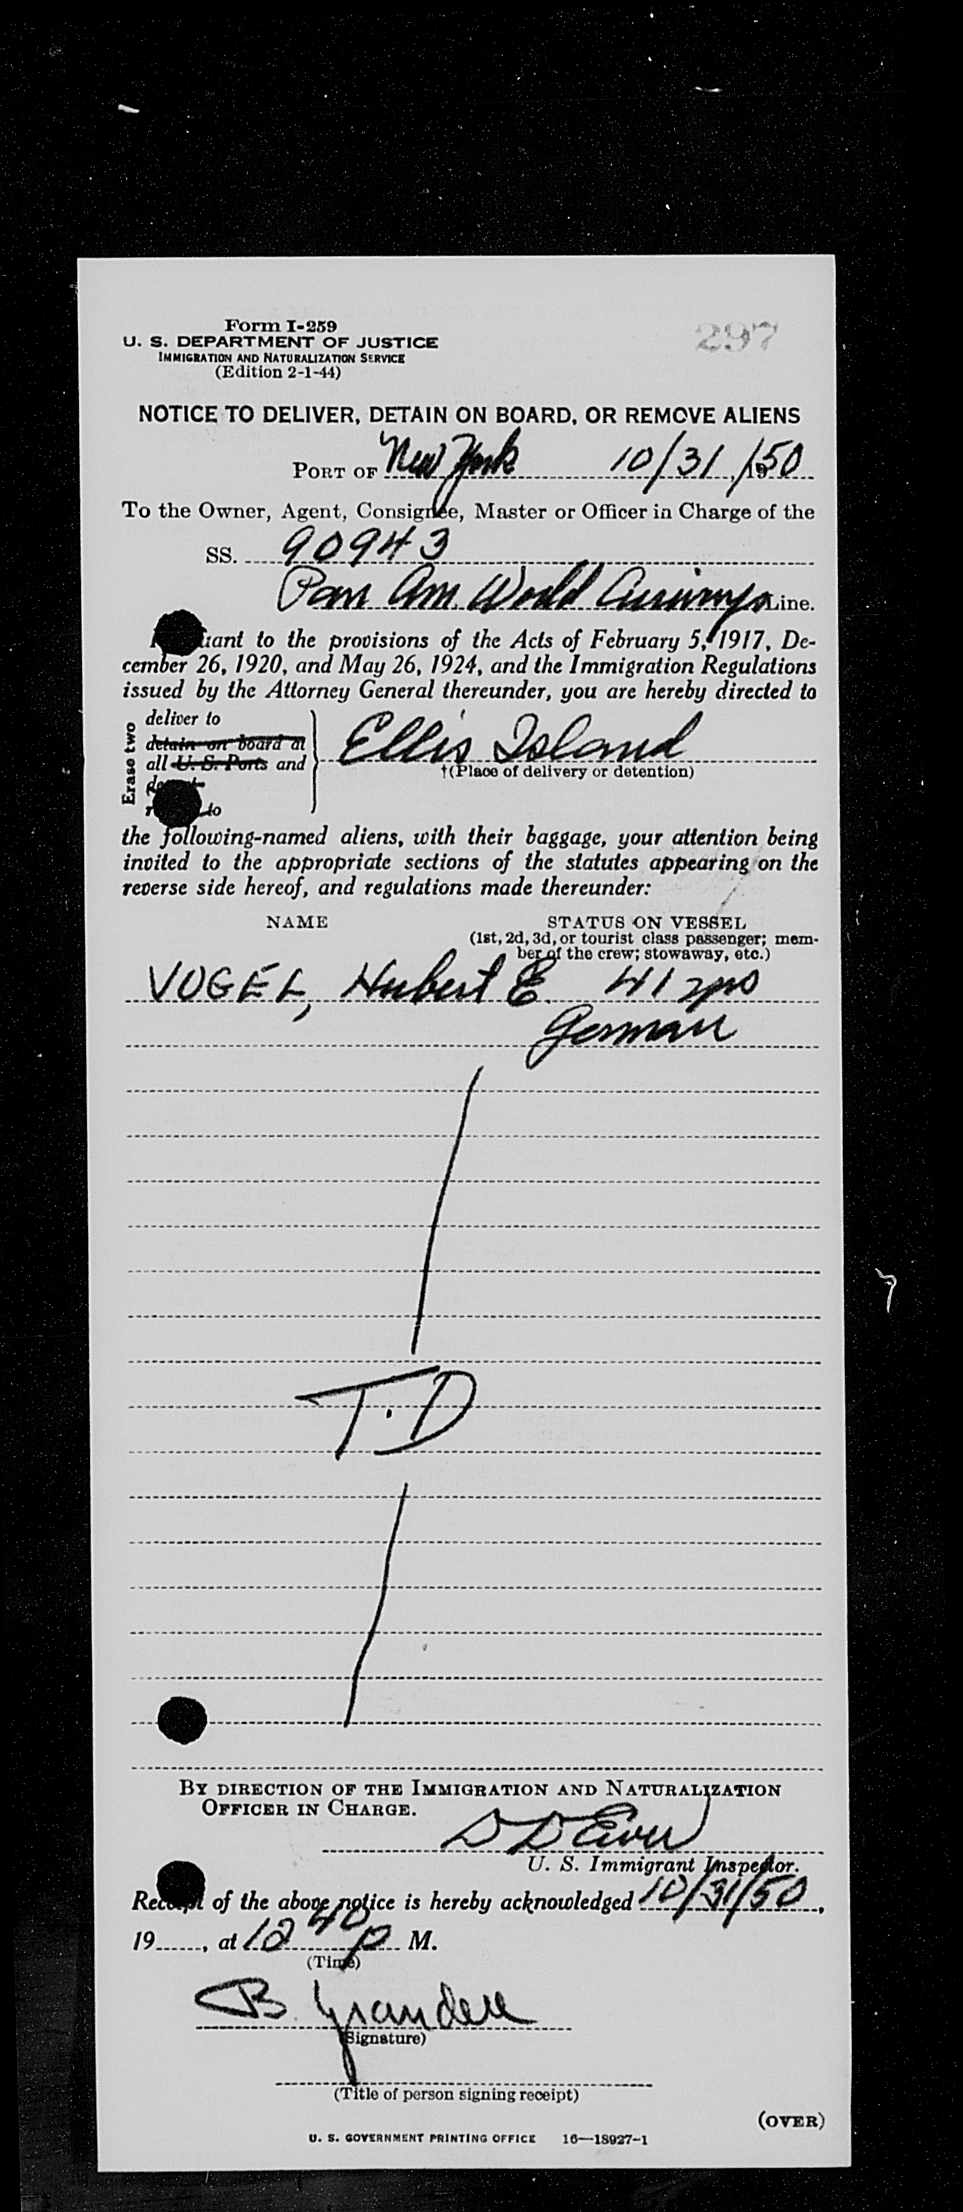 Form I-259
297
U. S. DEPARTMENT OF JUSTICE
IMMIGRATION AND NATURALIZATION SERVICE
(Edition 2-1-44)
NOTICE TO DELIVER, DETAIN ON BOARD, OR REMOVE ALIENS
PORT OF New York 10/31, 1950
To the Owner, Agent, Consignee, Master or Officer in Charge of the
SS. 90943
Pan Am World Airways Line.
to the provisions of the Acts of February 5, 1917, De-
cember 26, 1920, and May 26, 1924, and the Immigration Regulations
issued by the Attorney General thereunder, you are hereby directed to
Erase two
deliver to
detain on board at
all U. S. Ports and
to
Ellis Island
†(Place of delivery or detention)
the following-named aliens, with their baggage, your attention being
invited to the appropriate sections of the statutes appearing on the
reverse side hereof, and regulations made thereunder:
NAME STATUS ON VESSEL
(1st, 2d, 3d, or tourist class passenger; mem-
ber of the crew; stowaway, etc.)
VOGEL, Hubert E. 41 yrs
German
T.D
BY DIRECTION OF THE IMMIGRATION AND NATURALIZATION
OFFICER IN CHARGE.
D D
U. S. Immigrant Inspector.
Receipt of the above notice is hereby acknowledged 10/31/50,
19......, at 12 40 p M.
(Time)
B.
(Signature)
(Title of person signing receipt)
(OVER)
U. S. GOVERNMENT PRINTING OFFICE 16—18927-1